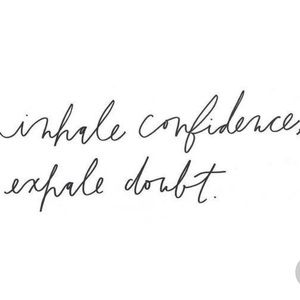 inhale confidence,
exhale doubt.